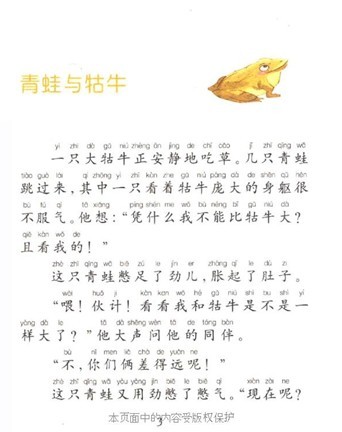 青蛙与牯牛
yì zhī dà gǔ niú zhèng ān jìng de chī cǎo jǐ zhī qīng wā
一只大牯牛正安静地吃草。几只青蛙
tiào guò lái qí zhōng yì zhī kàn zhe gǔ niú páng dà de shēn qū hěn
跳过来，其中一只看着牯牛庞大的身躯很
bù fú qì tā xiǎng píng shén me wǒ bù néng bǐ gǔ niú dà
不服气。他想：“凭什么我不能比牯牛大？
qiě kàn wǒ de
且看我的！”
zhè zhī qīng wā biē zú le jìn er zhàng qǐ le dù zi
这只青蛙憋足了劲儿，胀起了肚子。
wèi huǒ jì kàn kan wǒ hé gǔ niú shì bu shì yí
“喂！伙计！看看我和牯牛是不是一
yàng dà le tā dà shēng wèn tā de tóng bàn
样大了？”他大声问他的同伴。
bù nǐ men liǎ chà de yuǎn ne
“不，你们俩差得远呢！”
zhè zhī qīng wā yòu yòng jìn biē le biē qì xiàn zài ne
这只青蛙又用劲憋了憋气。“现在呢？
本页面中的内容受版权保护
3